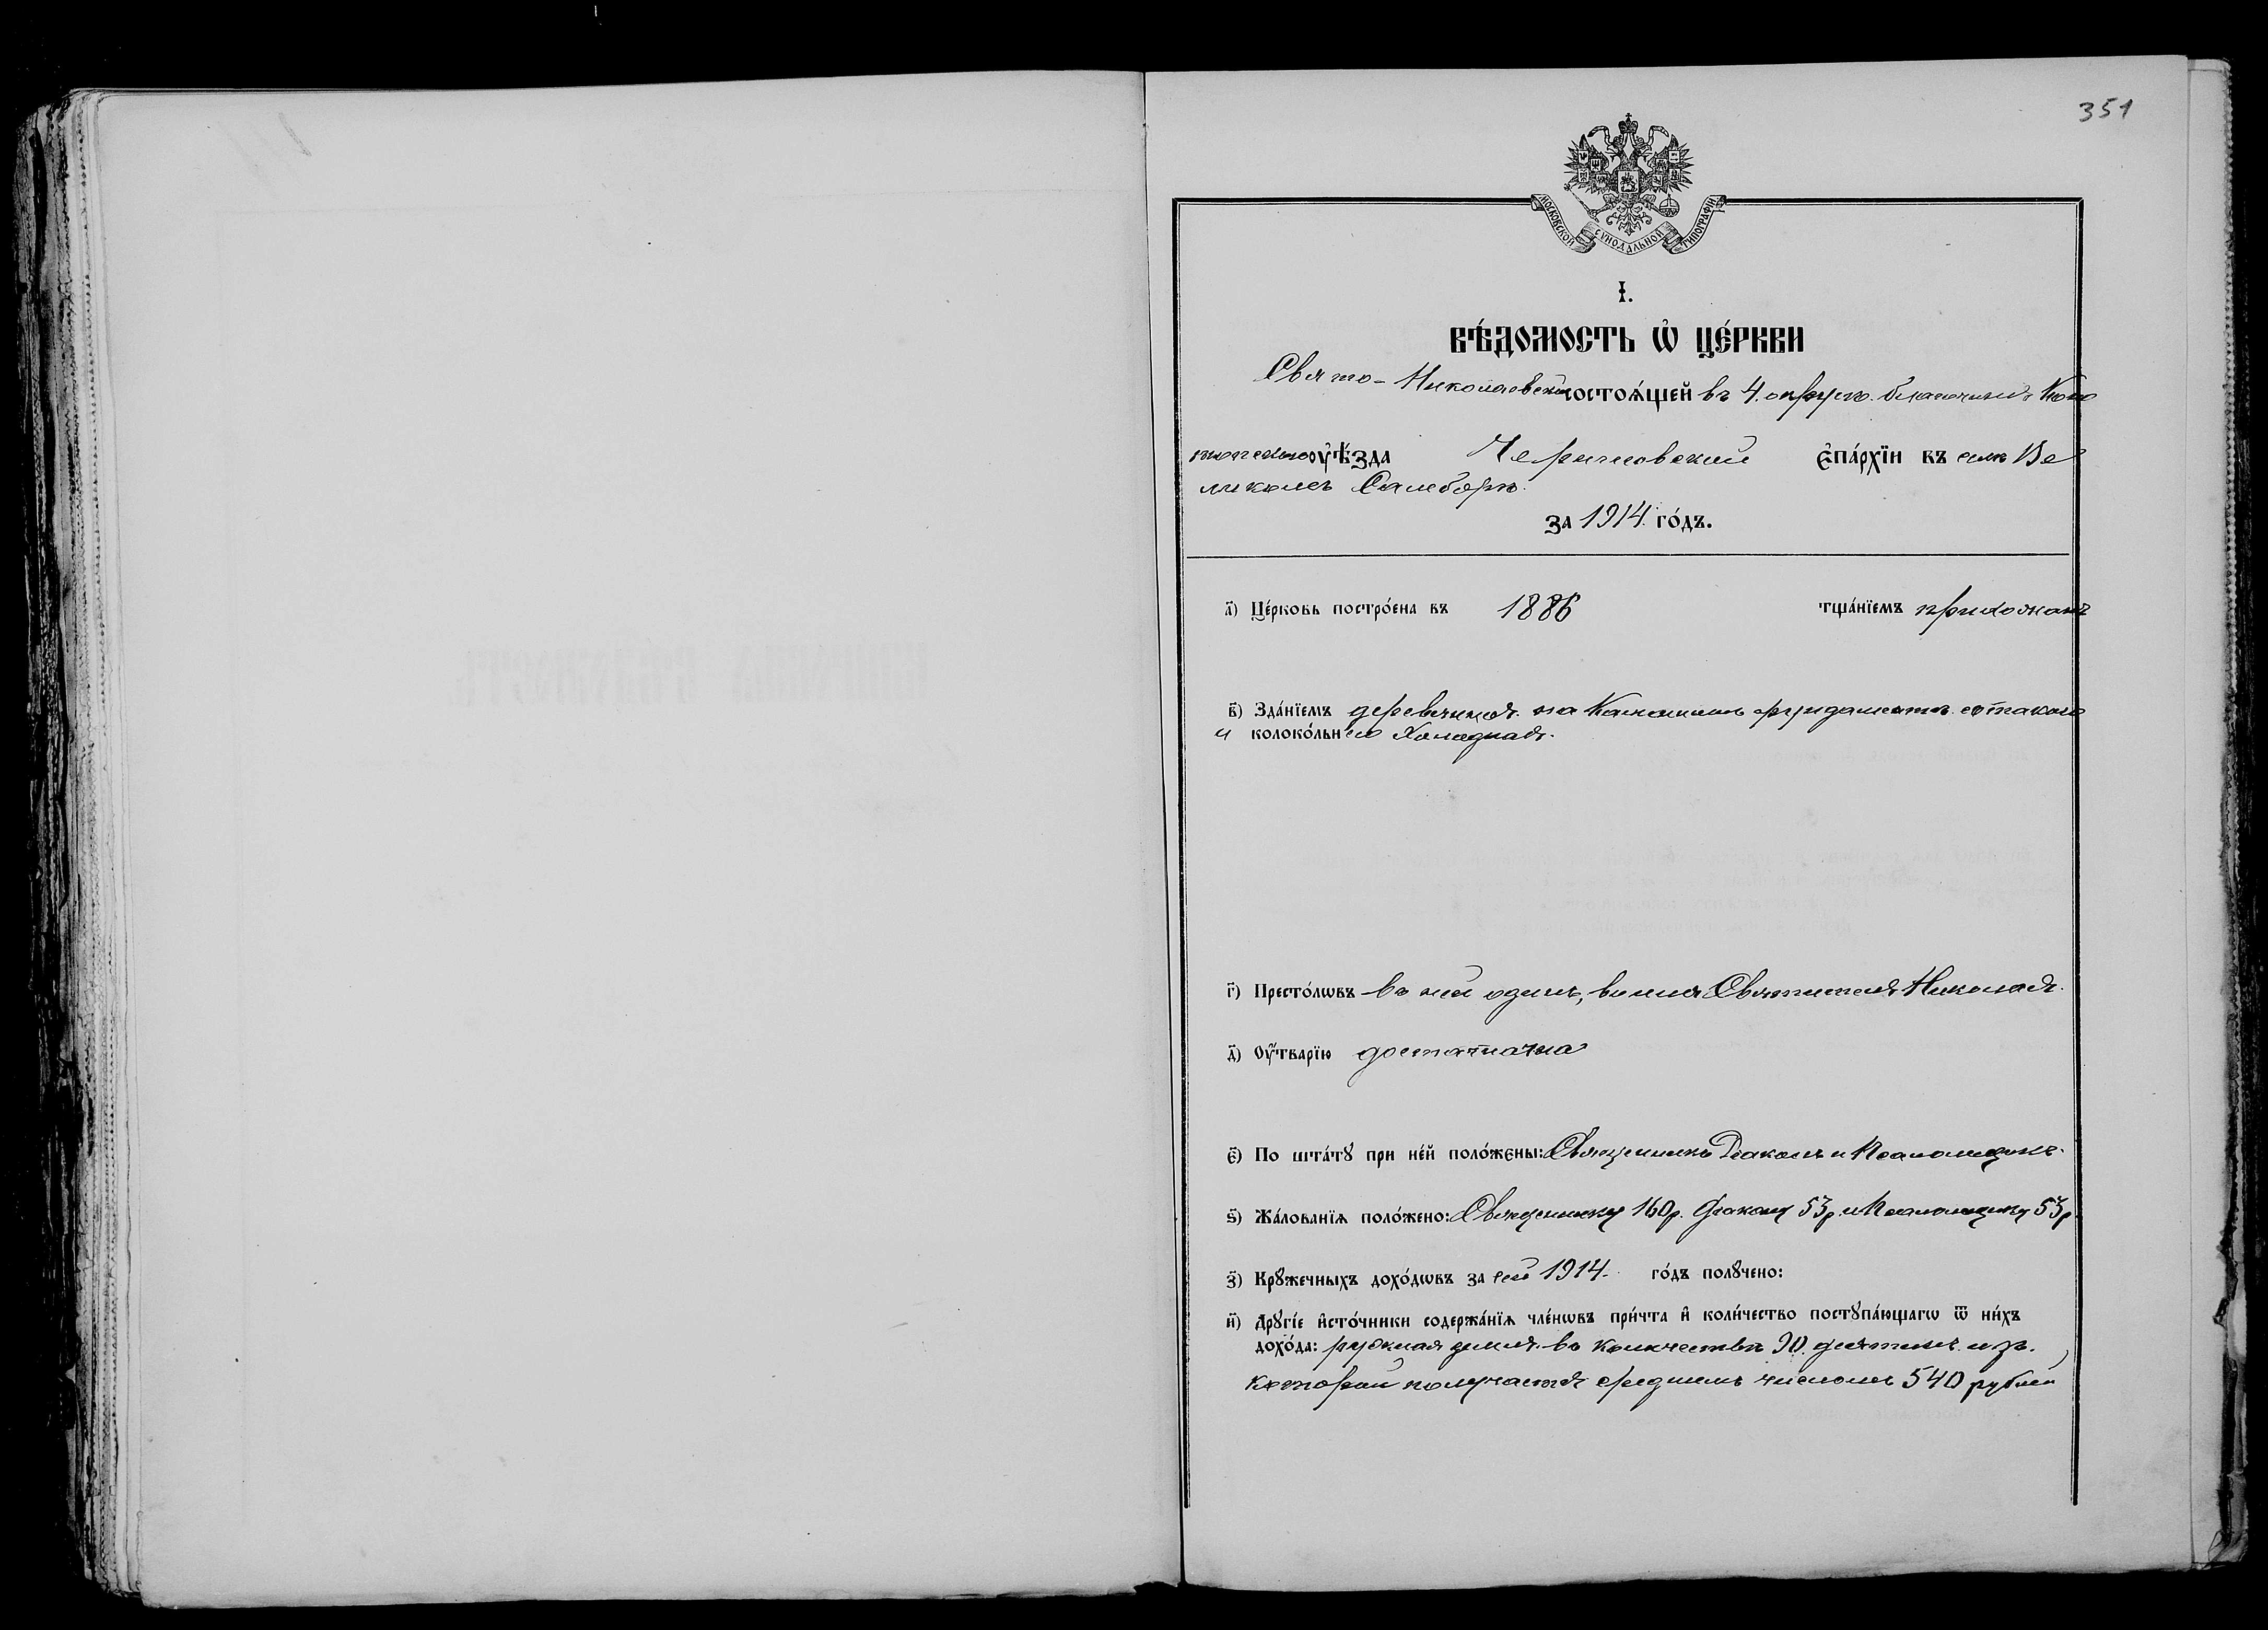 351
МОСКОВСКОЙ СѴНОДАЛЬНОЙ ТИПОГРАФІИ
І.
ВѢ́ДОМОСТЬ Ѽ ЦЕ́РКВИ
Свято-Николаевской состоѧ́щей въ 4. округѣ. благочинія Коно
топскаго ᲂу҆ѣ́зда Черниговской є҆па́рхїи въ селѣ Ве
ликомъ Самборѣ.
за 1914 го́дъ.
а҃) Це́рковь постро́ена въ 1886 тща́нїемъ прихожанъ
в҃) Зда́нїемъ деревянная. на Каменномъ фундаментѣ. съ такою
и колоко́льнею холодная.
г҃) Престо́лѡвъ въ ней одинъ, во имя Святителя Николая.
д҃) Оу҆́тварїю достаточна
є҃) По шта́тꙋ при не́й поло́жены: Священникъ Діаконъ и Псаломщикъ.
ѕ҃) Жа́лованїѧ поло́жено: Священнику 160р. Діакону 53р. и Псаломщику 53р.
з҃) Крꙋ́жечныхъ дохо́дѡвъ за сей 1914. го́дъ полꙋ́чено:
и҃) Дрꙋгі́е и҆сто́чники содержа́нїѧ чле́нѡвъ при́чта и҆ коли́чество постꙋпа́ющагѡ ѿ ни́хъ
дохо́да: ружная земля. въ количествѣ 90. десятинъ. изъ.
которой получается среднимъ числомъ 540 рублей